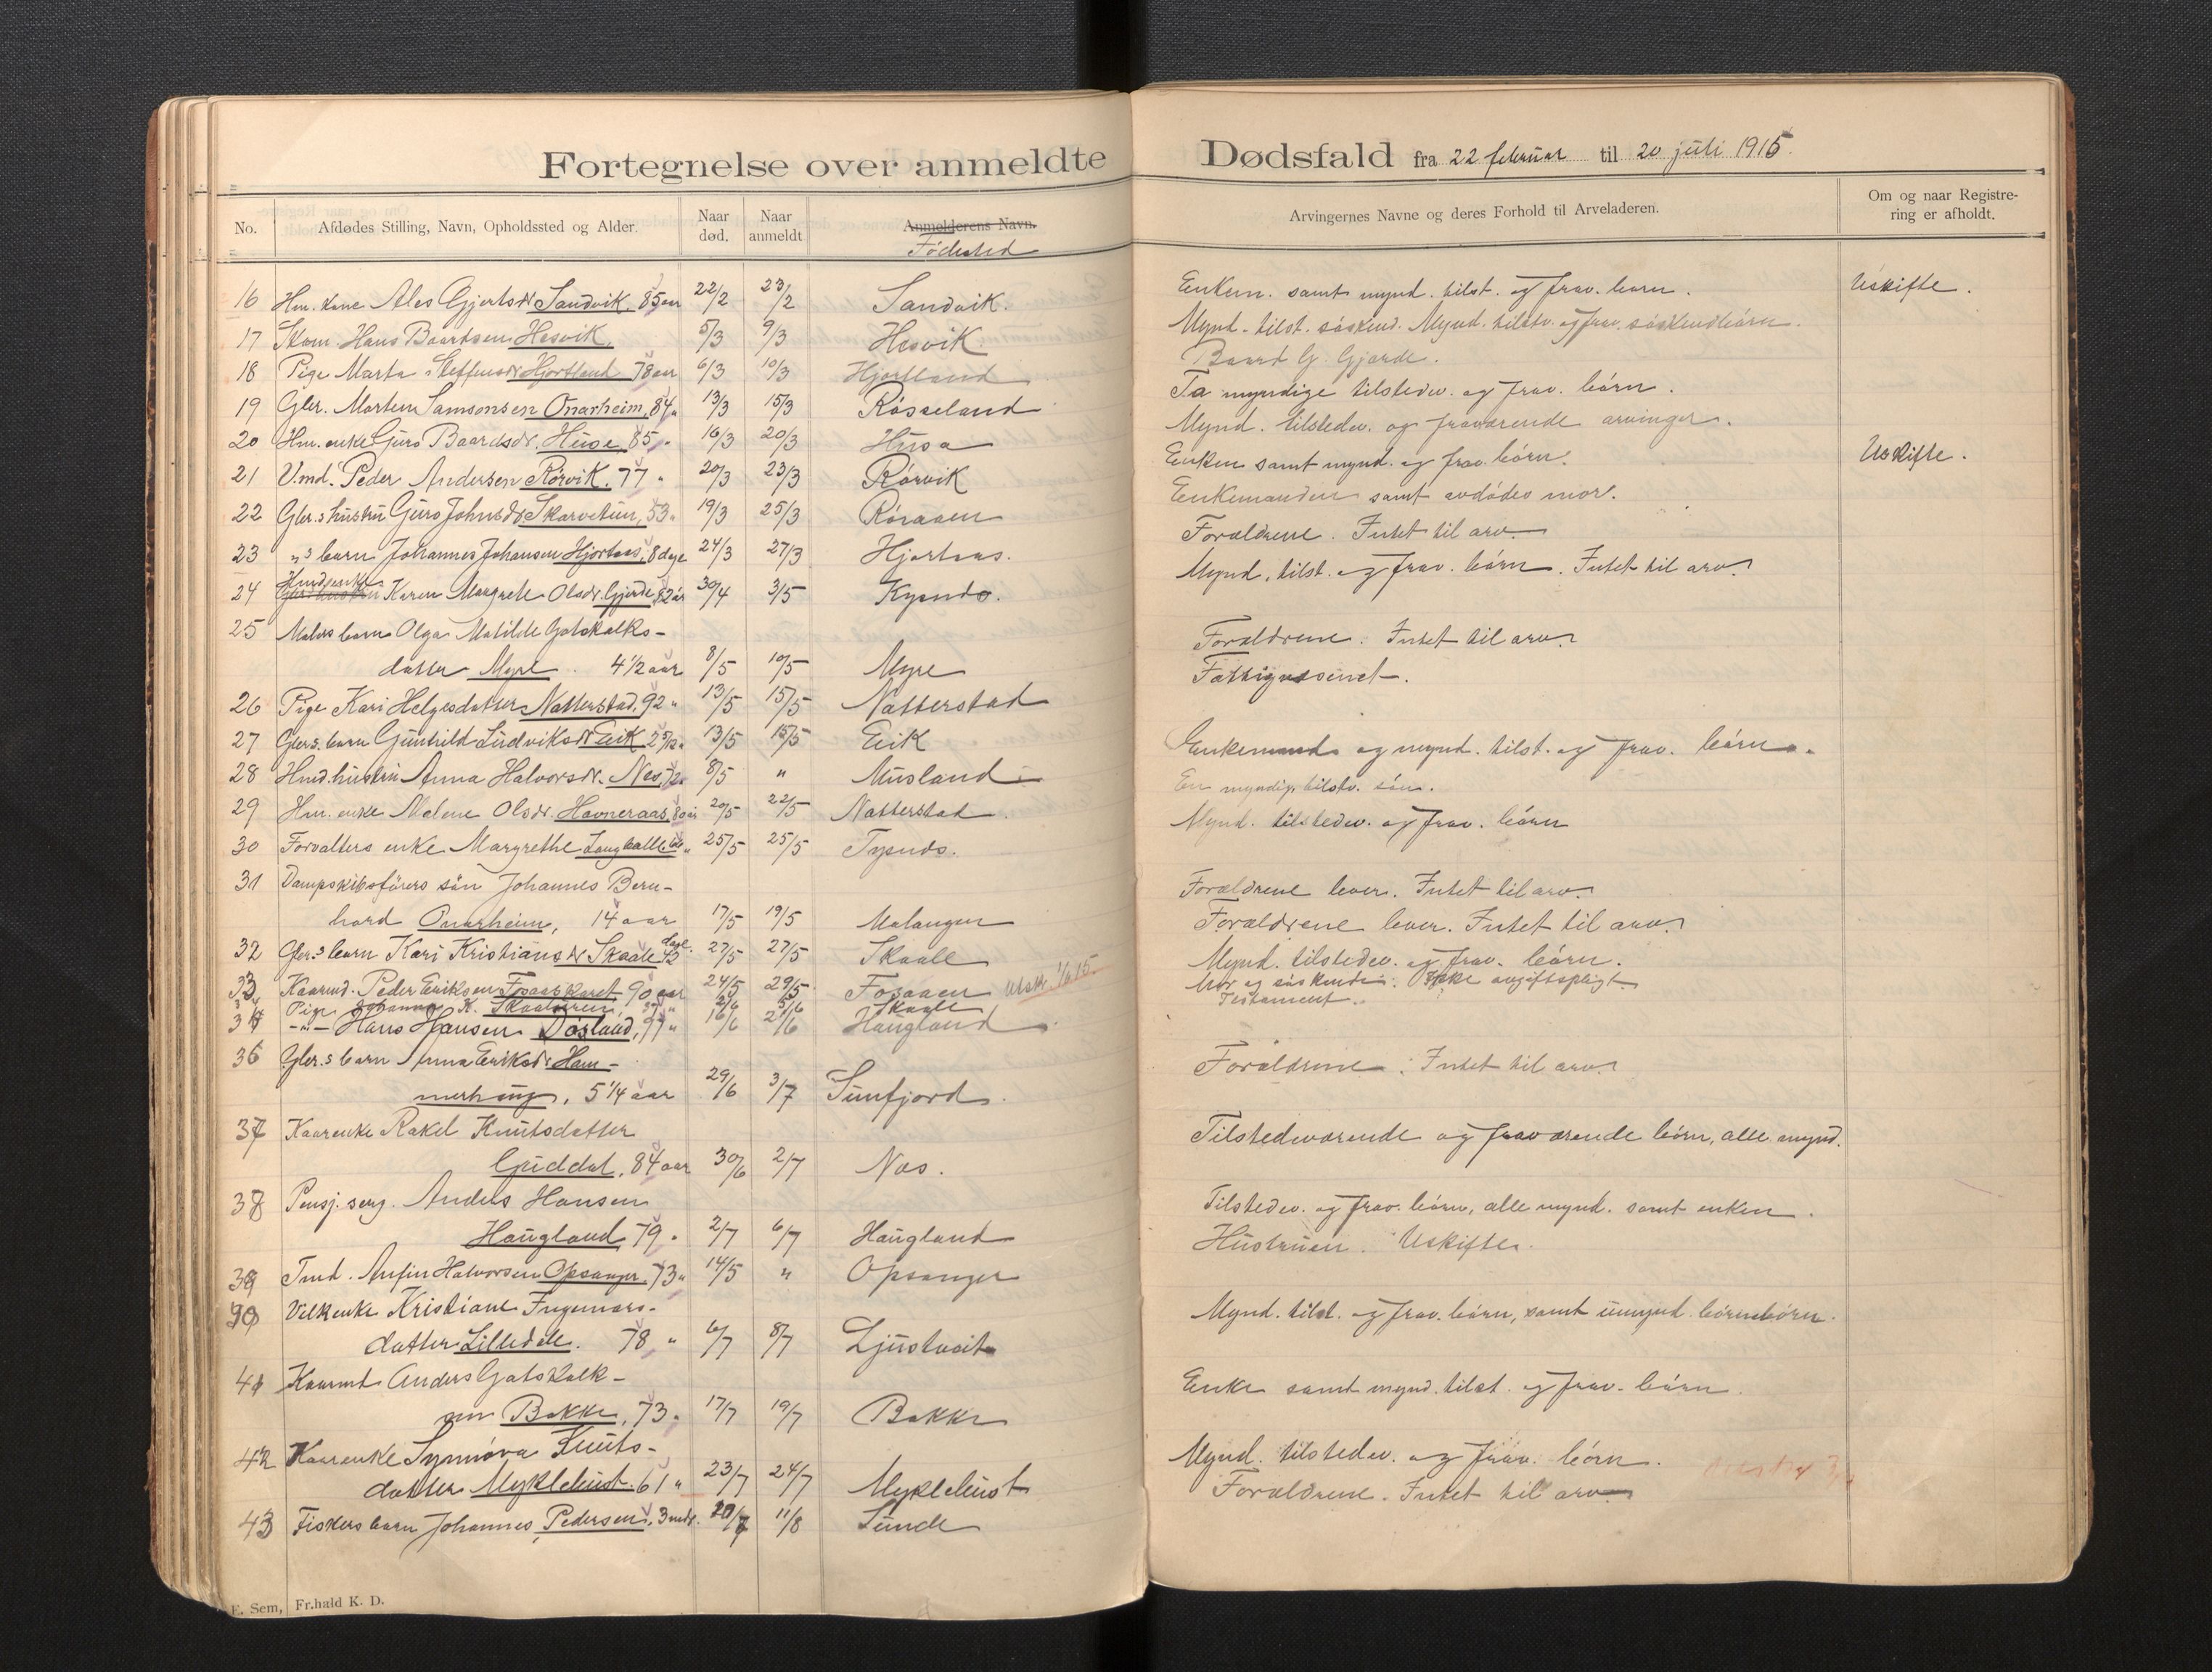 Fortegnelse over anmeldte Dødsfald fra 22 februar til 20 juli 1915.
No. Afdødes Stilling, Navn, Opholdssted og Alder. Naar død. Naar anmeldt Anmelderens Navn. Fødested
Arvingernes Navne og deres Forhold til Arveladeren. Om og naar Registrering er afholdt.
16 Hm. kone Ales Gjertsdr Sandvik, 85 aar 22/2 23/2 Sandvik. Enken. samt mynd. tilst. og frav. børn. Uskifte.
17 Hans Baardsen Hesvik. 5/3 9/3 Hesvik. Mynd. tilst. søskend. Mynd. tilstv. og frav. søskendbørn.
18 Pige Marta Steffensdr Hjortland 78 aar 6/3 10/3 Hjortland Baard G. Gjerde.
19 Gbr. Morten Samsonsen Onarheim, 84 " 13/3 15/3 Røsseland To myndige tilstedv. og frav. børn.
20 Hm. enke Guro Baardsdr. Huse, 85 " 16/3 20/3 Husa Mynd. tilstedev. og fraværende arvinger.
21 V.md. Peder Andersen Rørvik. 77 " 20/3 23/3 Rørvik Enken samt mynd. og frav. børn. Uskifte.
22 Gbr.s hustru Guro Johnsdr Skarvetun, 53 " 19/3 25/3 Røraaen Enkemanden samt avdødes mor.
23 "s barn Johannes Johansen Hjortaas, 8 dage 24/3 27/3 Hjortaas. Forældrene. Intet til arv.
24 Hmds enke Karen Margrete Olsdr. Gjerde, 82 år 30/4 3/5 Mynd. tilst. og frav. børn. Intet til arv.
25 Malers barn Olga Matilde Gotskalks-
datter Myre. 4 1/2 aar 8/5 10/5 Myre Forældrene. Intet til arv.
26 Pige Kari Helgesdatter Natterstad, 92 " 13/5 15/5 Natterstad Fattigvesenet.
27 Gbr.s. barn Gunhild Ludviksdr Eik 2 5/12 " 13/5 15/5 Eik
28 Hmd. hustru Anna Halvorsdr. Nes, 72 " 8/5 " Musland Enkemand og mynd. tilst. og frav. børn.
29 Hm. enke Malene Olsdr. Havneraas, 80 år 20/5 22/5 Natterstad. En myndig tilstv. søn.
30 Forvalters enke Margrethe 25/5 25/5 Tysnes. Mynd. tilstedev. og frav. børn
31 Dampskibsførers søn Johannes Bern-
hard Onarheim, 14 aar 17/5 19/5 Malangen Forældrene lever. Intet til arv.
32 Gbr.s barn Kari Kristiansdr Skaale dage 27/5 27/5 Skaale Forældrene lever. Intet til arv.
33 Kaarmd. Peder Eriksen Fosaaskaret 90 aar 24/5 29/5 Fosaaen Mynd. tilstedev. og frav. børn.
Pige Johanna K. 2/6 5/6 Skaale Mor og søskende. Ikke avgiftspligt. Testament.
-"- Hans Hansen Døsland, 97 " 16/6 21/6 Haugland
36 Gbr.s barn Anna Eriksdr Ham-
merhaug, 5 1/4 aar 29/6 3/7 Sunfjord. Forældrene. Intet til arv.
37 Kaarenke Rakel Knutsdatter
Guddal, 84 aar 30/6 2/7 Nes. Tilstedeværende og fraværende børn, alle mynd.
38 Pensj. serg. Anders Hansen
Haugland 79 " 2/7 6/7 Haugland Tilstedev. og frav. børn, alle mynd. samt enken.
39 Tmd. Anfin Halvorsen Opsanger, 73 " 14/5 " Opsanger Hustruen. Uskifte.
40 Vilkenke Kristiane Ingemars-
datter Lilledale. 78 " 6/7 8/7 Ljustveit Mynd. tilst. og frav. børn, samt umynd. børnebørn.
41 Kaarmd Anders Gotskalk-
sen Bakke, 73 " 17/7 19/7 Bakke Enke samt mynd. tilst. og frav. børn.
42 Kaarenke Synnøva Knuts-
datter Myklebust. 61 " 23/7 24/7 Myklebust Mynd. tilstedev. og frav. børn.
43 Fiskers barn Johannes Pedersen, 3 mdr. 20/7 11/8 Sunde Forældrene. Intet til arv.
E. Sem, Fr.hald K. D.